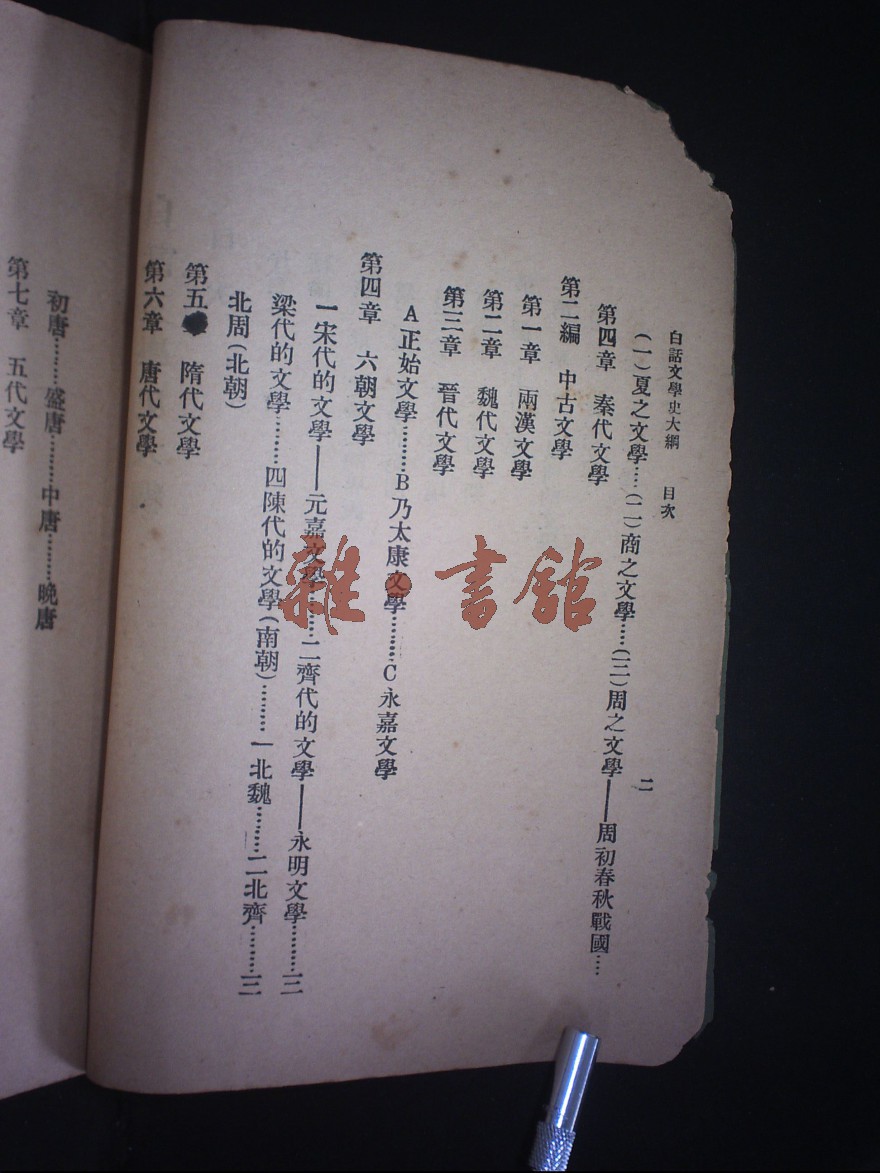 白話文學史大綱　目次
二
(一)夏之文學……(二)商之文學……(三)周之文學——周初春秋戰國……
第四章　秦代文學
第二編　中古文學
第一章　兩漢文學
第二章　魏代文學
第三章　晉代文學
A正始文學………B乃太康文學………C永嘉文學
第四章　六朝文學
一宋代的文學——元嘉文學………二齊代的文學——永明文學………三
梁代的文學………四陳代的文學(南朝)………一北魏………二北齊………三
北周(北朝)
第五　隋代文學
第六章　唐代文學
初唐………盛唐………中唐………晚唐
第七章　五代文學
雜·書館